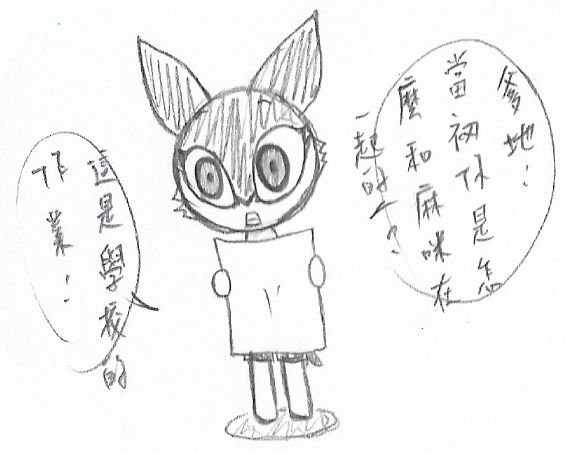 爹地！
當初你是怎
麼和麻咪在
一起的ㄟ？
這是學校的
作業！